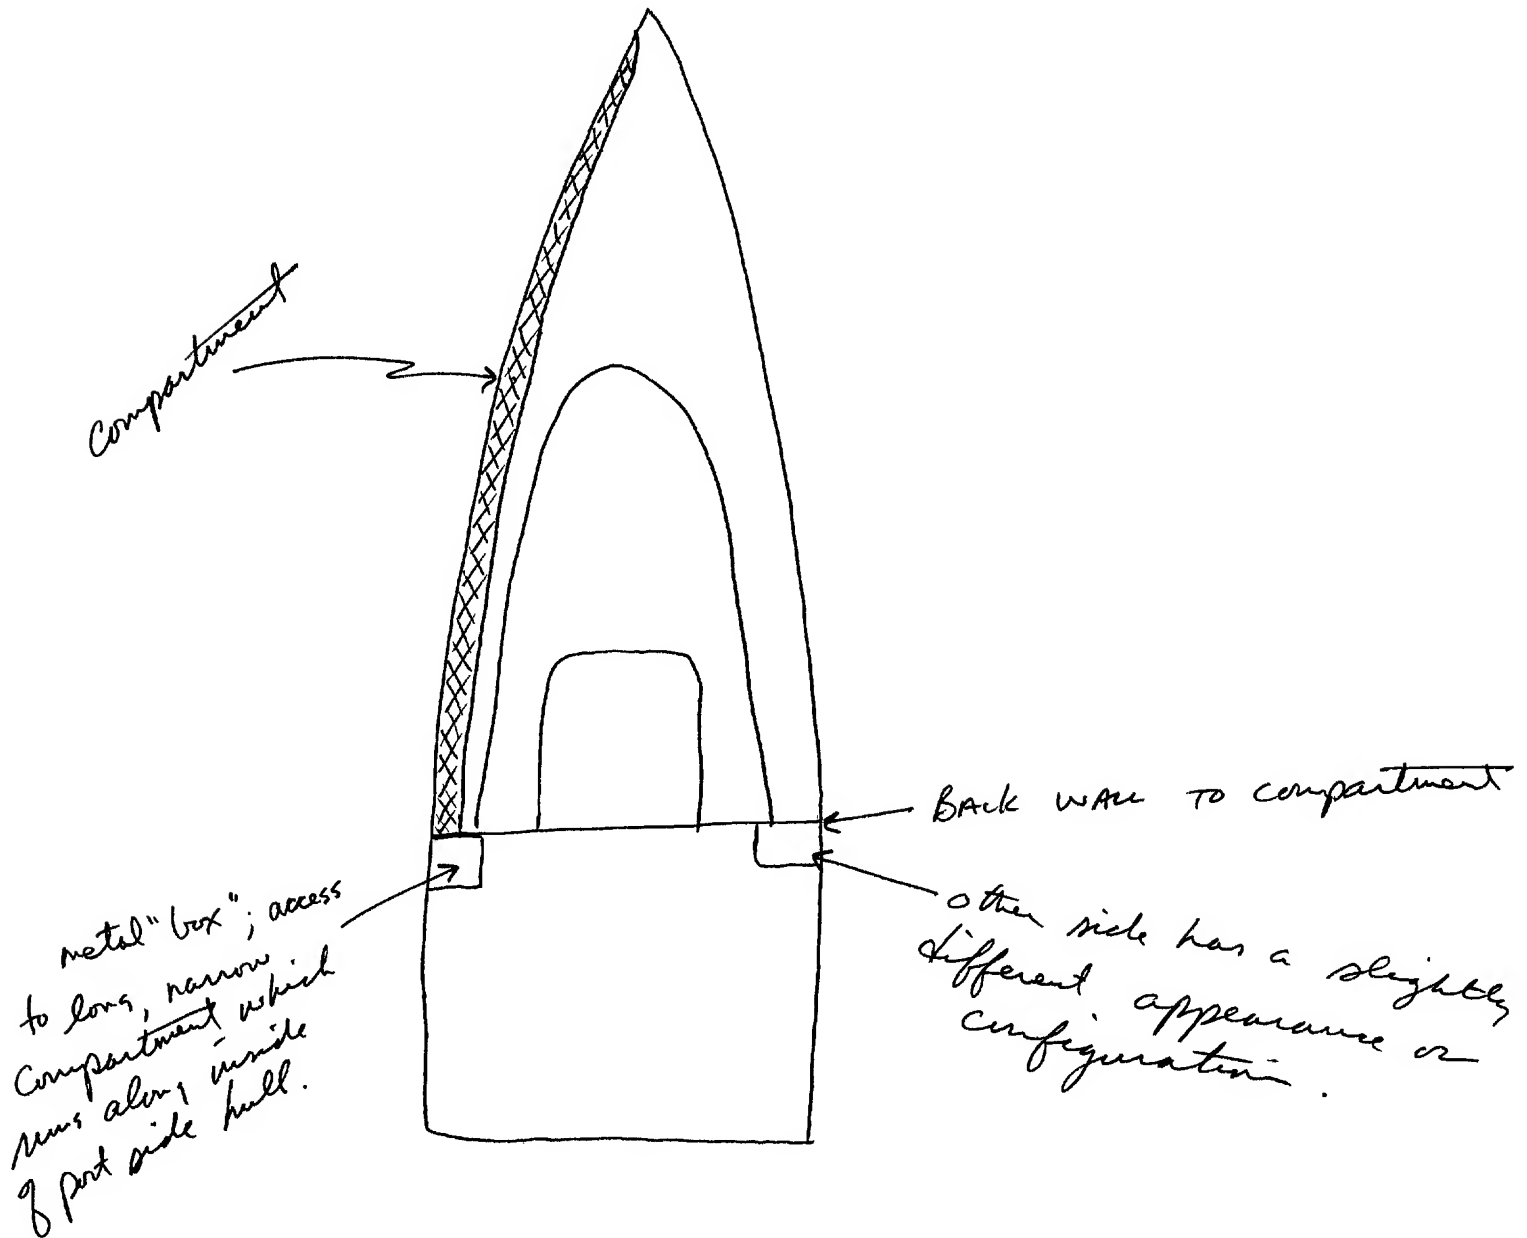 compartment
BACK WALL TO compartment
metal "box"; access
to long, narrow
compartment which
runs along inside
of port side hull.
other side has a slightly
different appearance or
configuration.